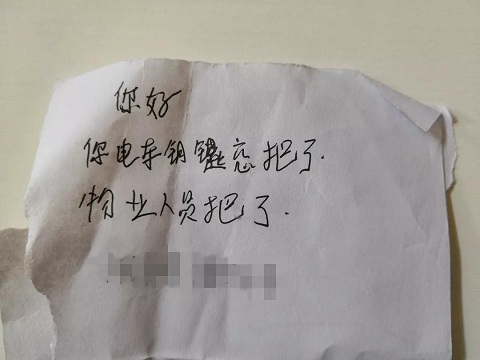 你好
你电车钥键忘把了.
物业人员把了.